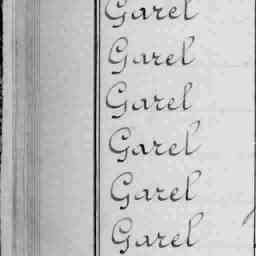 Garel
Garel
Garel
Garel
Garel
Garel